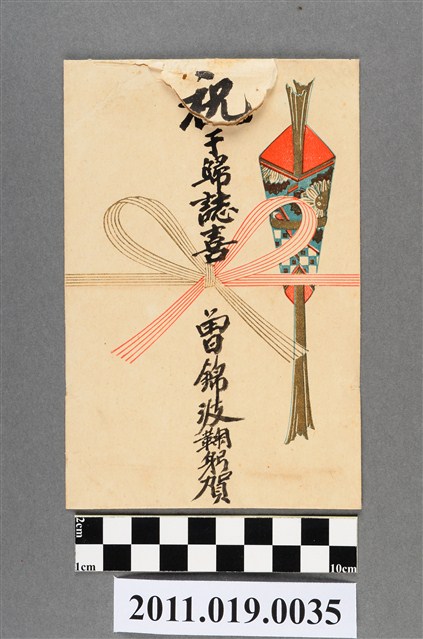 祝
于歸誌喜
曾錦波鞠躬賀
2cm
1cm
10cm
2011.019.0035